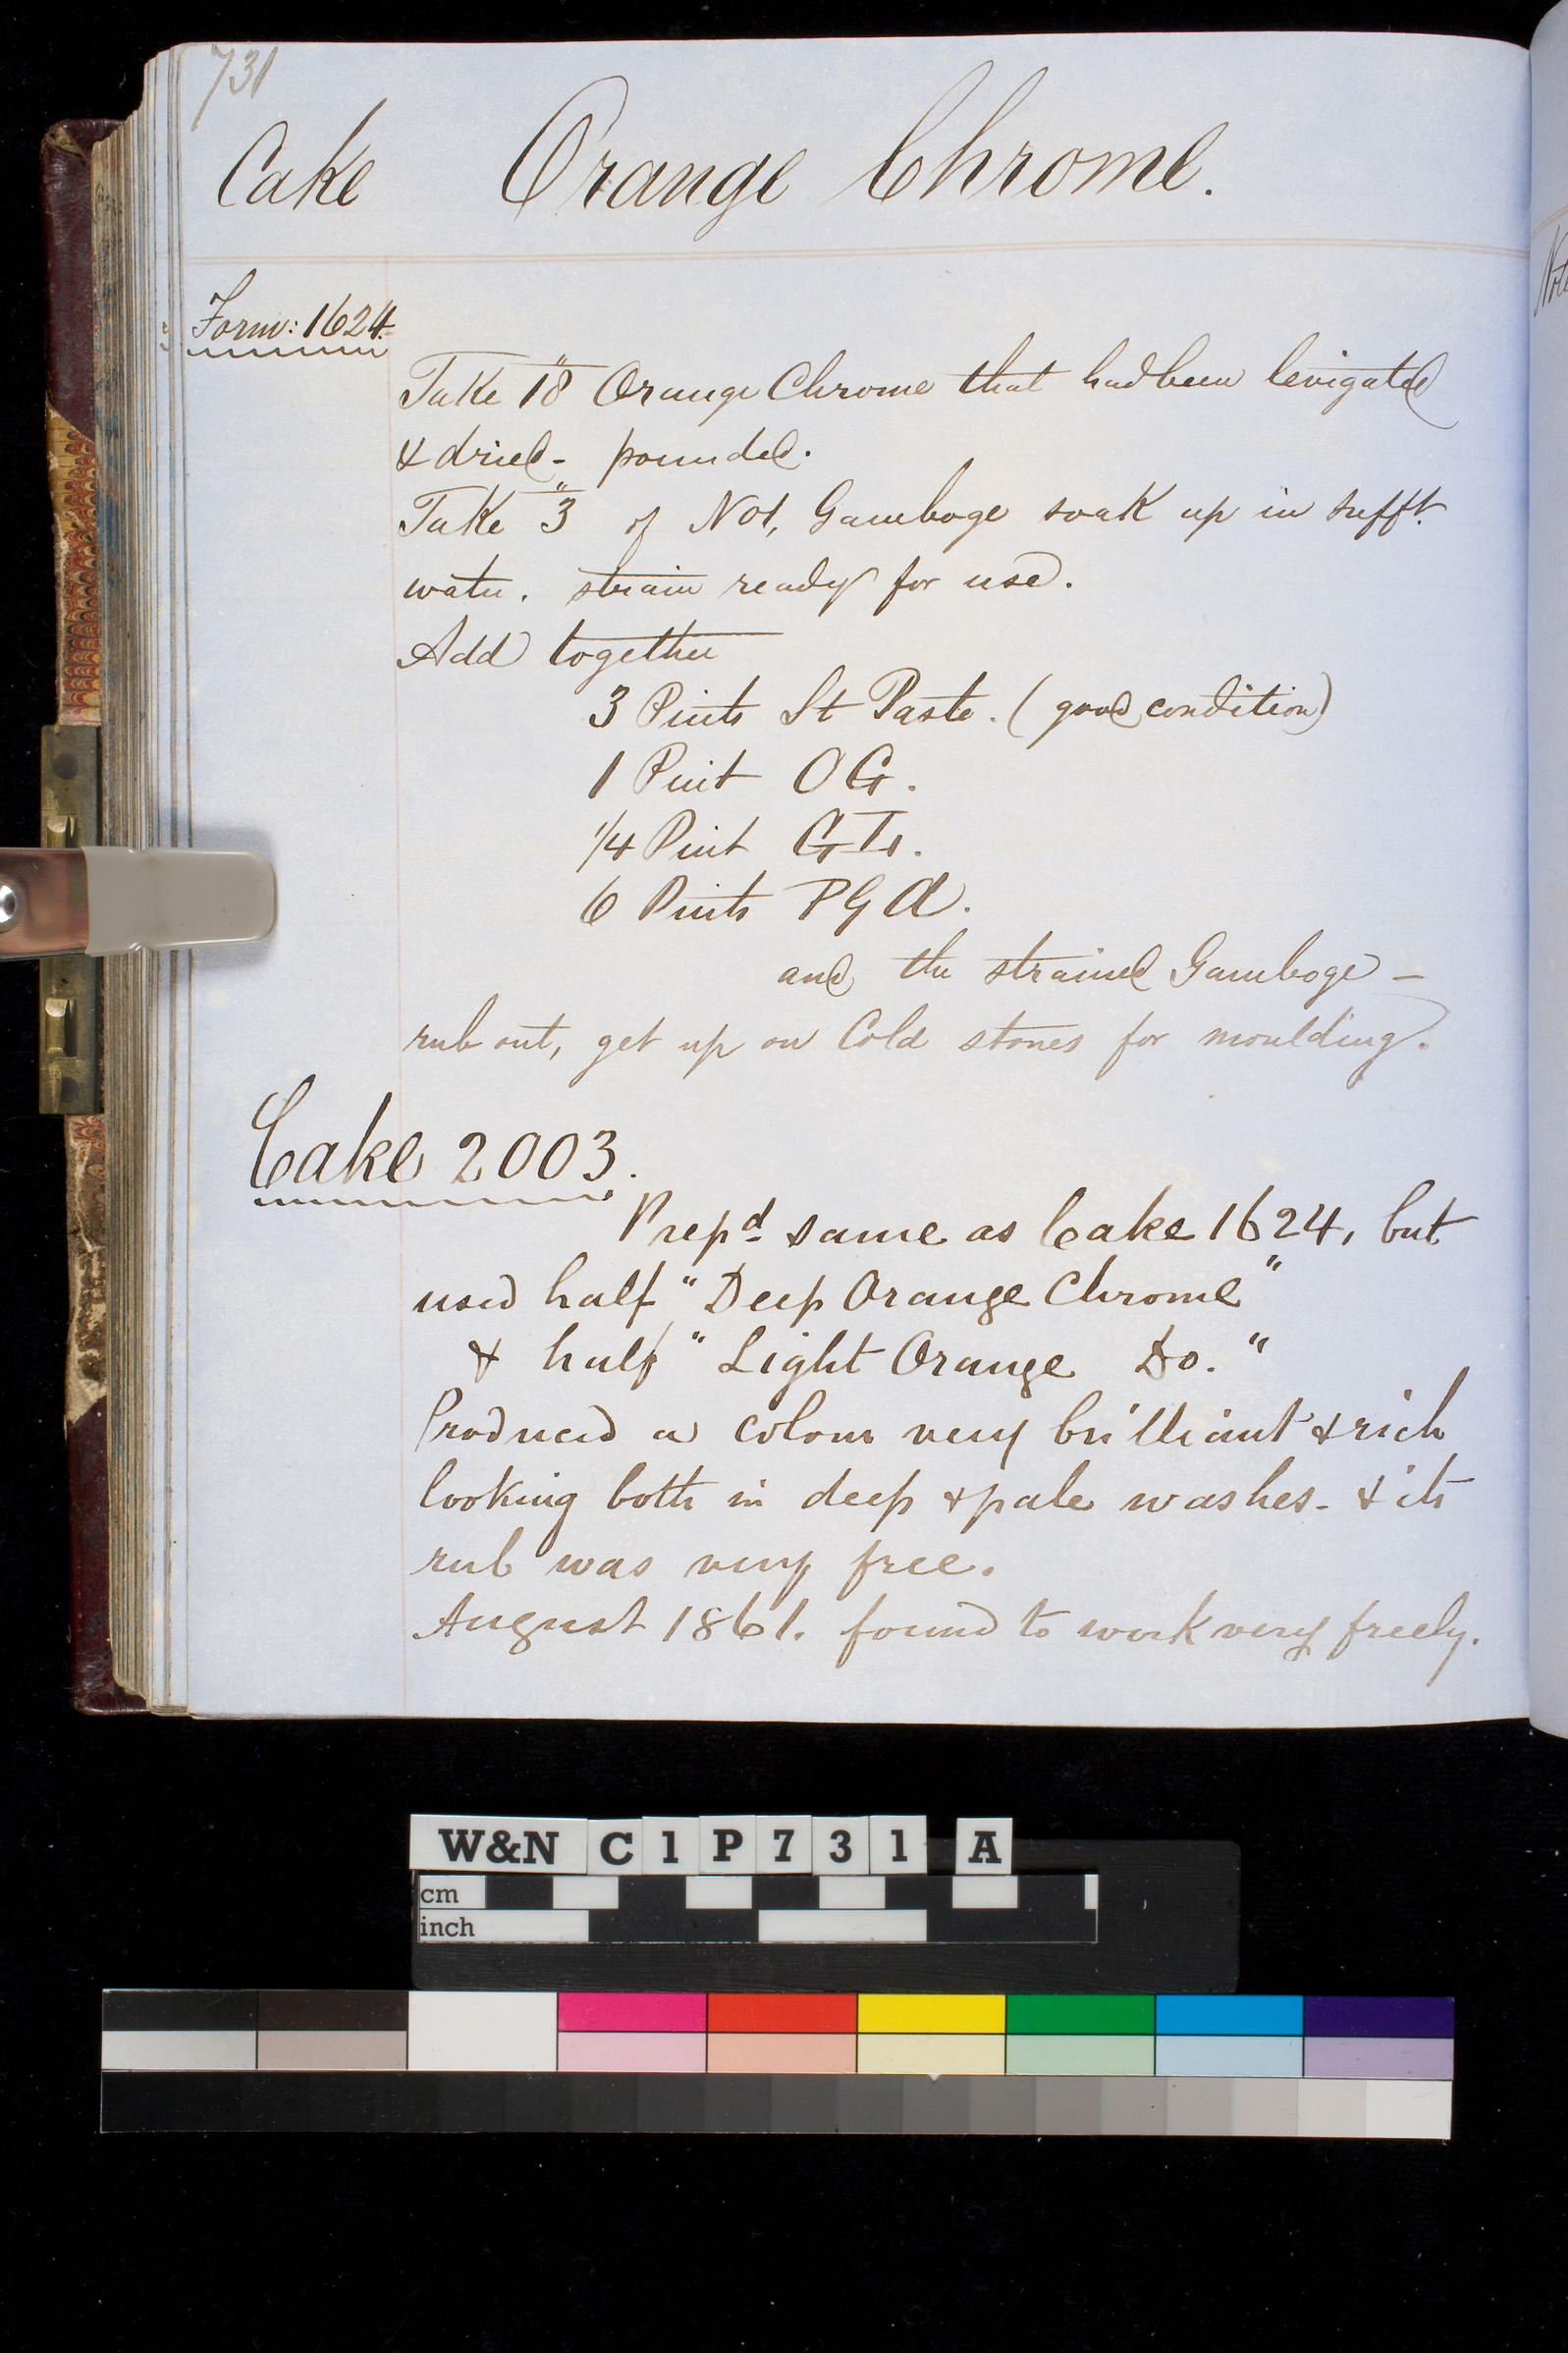 731
Cake Orange Chrome.
Form: 1624.
Take 18" Orange Chrome that had been levigated
& dried - pounded.
Take 3" of No1, Gamboge soak up in sufft.
water. strain ready for use.
Add together
3 Pints St Paste. (good condition)
1 Pint OG.
1/4 Pint GT.
6 Pints PGA.
and the strained Gamboge -
rub out, get up on Cold stones for moulding.
Cake 2003.
Prepd same as Cake 1624, but
used half "Deep Orange Chrome"
& half "Light Orange Do."
Produced a colour very brilliant & rich
looking both in deep & pale washes - & its
rub was very free.
August 1861. found to work very freely.
W&N C1P731 A
cm
inch